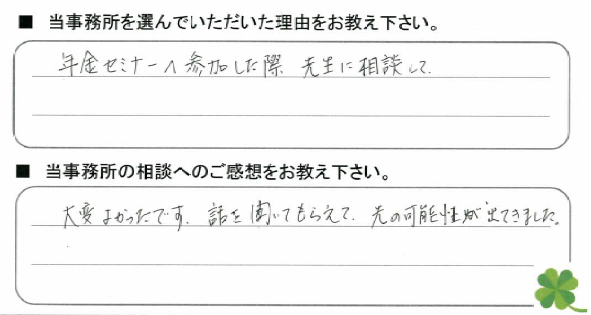 ■ 当事務所を選んでいただいた理由をお教え下さい。
年金セミナーへ参加した際 先生に相談して.
■ 当事務所の相談へのご感想をお教え下さい。
大変よかったです. 話を聞いてもらえて. 先の可能性が出てきました。